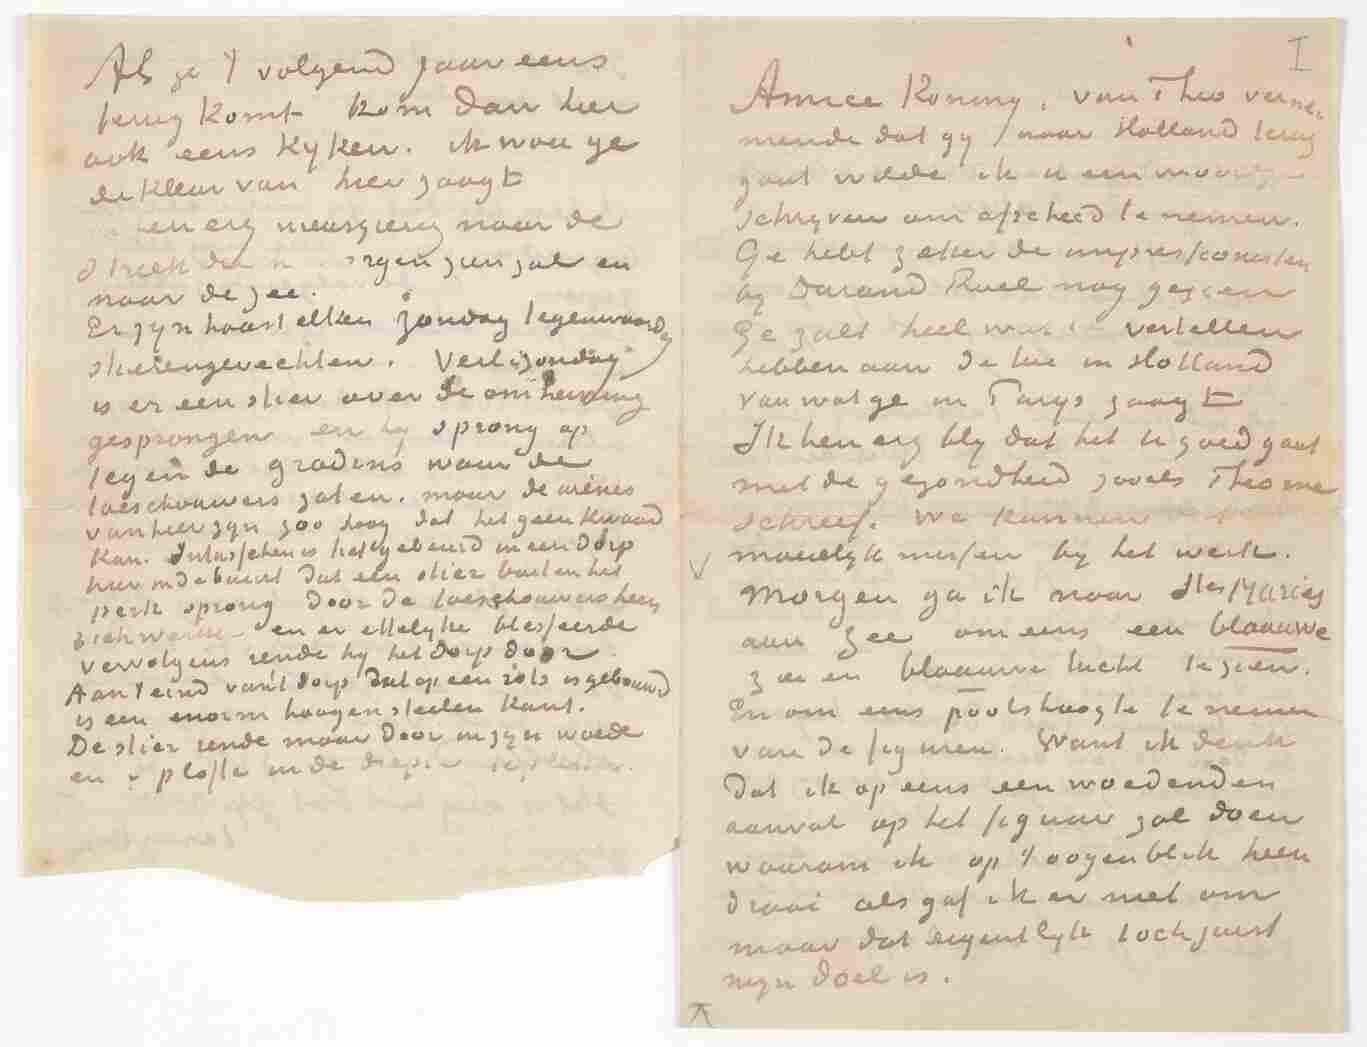 Als ge 't volgend jaar eens
terug komt kom dan hier
ook eens kyken. ik wou ge
de kleur van hier zaagt
ben erg nieuwsgierig naar de
streek die ik morgen zien zal en
naar de zee.
Er zyn haast elken zondag tegenwoordig
stierengevechten. Verl. zondag
is er een stier over de omheining
gesprongen en hy sprong op
tegen de gradins waar de
toeschouwers zaten. maar de arènes
van hier zyn zoo hoog dat het geen kwaad
kan. Intusschen is het gebeurd in een dorp
hier in de buurt dat een stier buiten het
perk sprong door de toeschouwers heen
zich werkte en er ettelyke blesseerde
vervolgens rende hy het dorp door
Aan 't eind van 't dorp dat op een rots is gebouwd
is een enorm hoogen steilen kant.
De stier rende maar door in zyn woede
en plofte in de diepte
I
Amice Koning, van Theo verne-
mende dat gy naar Holland terug
gaat wilde ik u een woordje
schryven om afscheid te nemen.
Ge hebt zeker de impressionisten
by Durand Ruel nog gezien
Ge zult heel wat te vertellen
hebben aan de lui in Holland
van wat ge in Parys zaagt
Ik ben erg bly dat het U goed gaat
met de gezondheid zooals Theo me
schreef. We kunnen die
moeielyk missen by het werk.
Morgen ga ik naar Stes Maries
aan zee om eens een blaauwe
zee en blaauwe lucht te zien.
En om eens poolshoogte te nemen
van de figuren. Want ik denk
dat ik op eens een woedenden
aanval op het figuur zal doen
waarom ik op 't oogenblik heen
draai als gaf ik er niet om
maar dat eigentlyk toch juist
myn doel is.